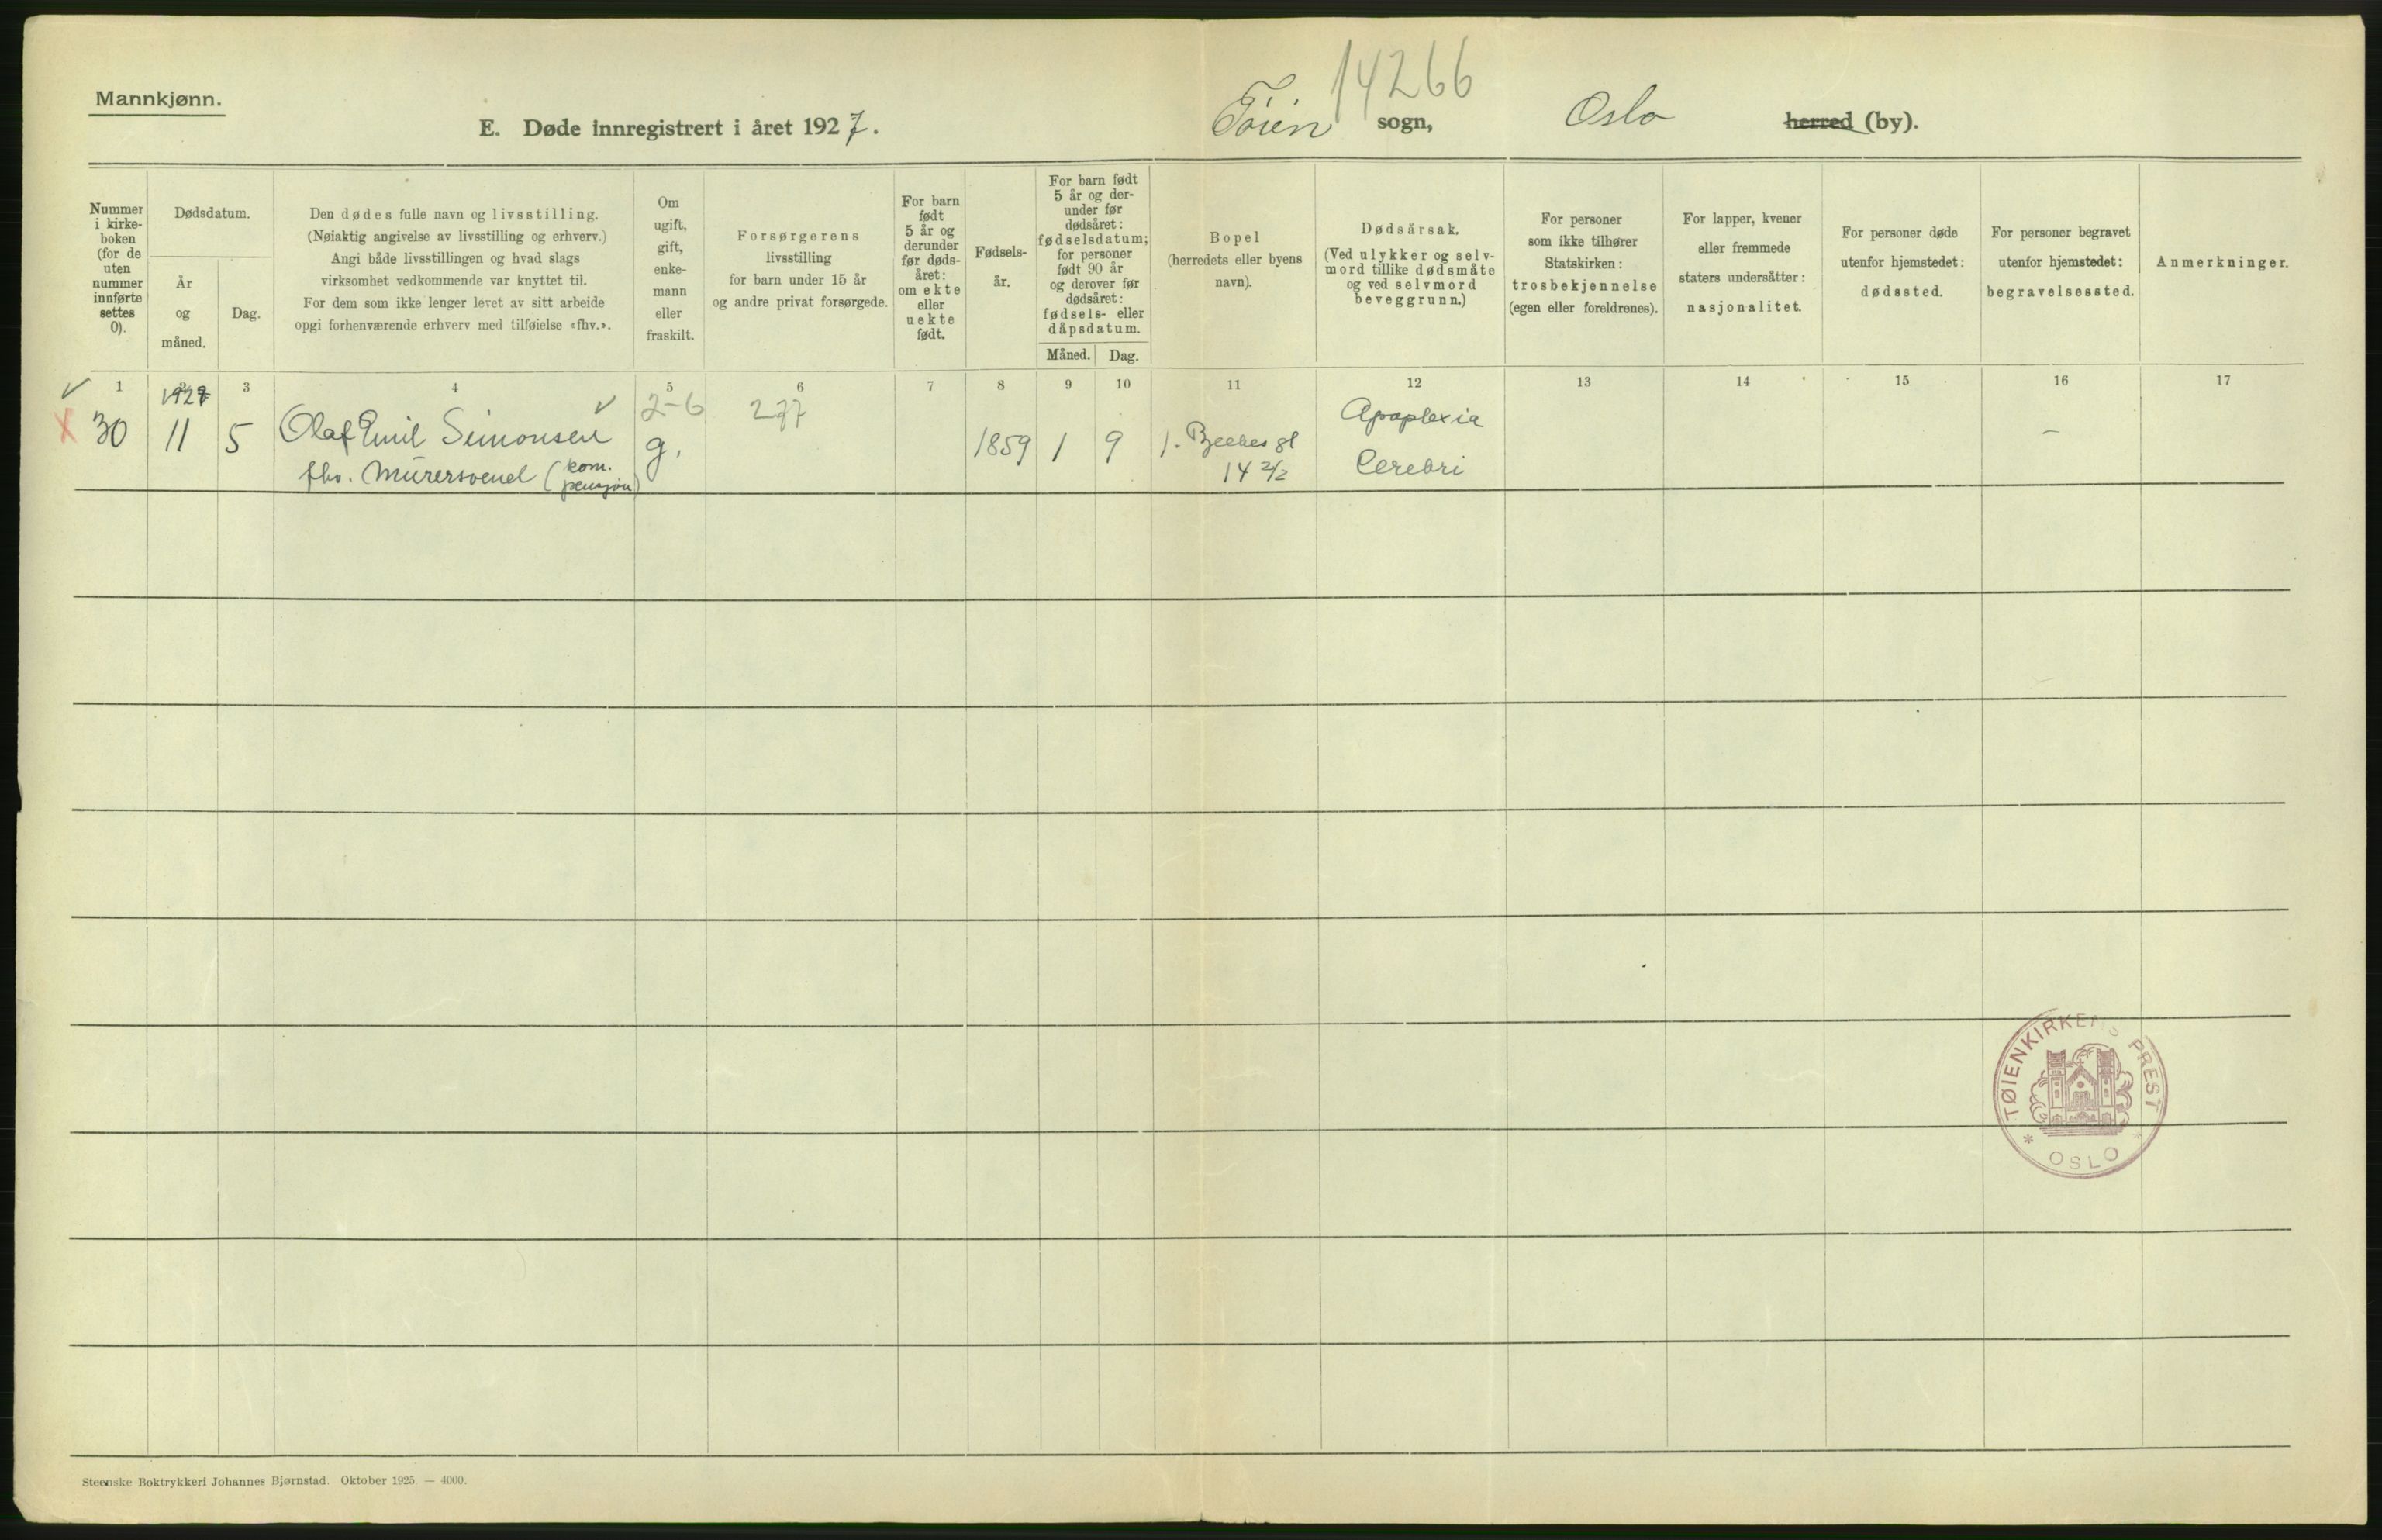 Mannkjønn.
14266
E. Døde innregistrert i året 1927.
Tøien sogn,
Oslo
herred (by).
Nummer
i kirke-
boken
(for de
uten
nummer
innførte
settes
0).
Dødsdatum.
År
og
måned.
Dag.
Den dødes fulle navn og livsstilling.
(Nøiaktig angivelse av livsstilling og erhverv.)
Angi både livsstillingen og hvad slags
virksomhet vedkommende var knyttet til.
For dem som ikke lenger levet av sitt arbeide
opgi forhenværende erhverv med tilføielse «fhv.».
Om
ugift,
gift,
enke-
mann
eller
fraskilt.
Forsørgerens
livsstilling
for barn under 15 år
og andre privat forsørgede.
For barn
født
5 år og
derunder
før døds-
året:
om ekte
eller
uekte
født.
Fødsels-
år.
For barn født
5 år og der-
under før
dødsåret:
fødselsdatum;
for personer
født 90 år
og derover før
dødsåret:
fødsels- eller
dåpsdatum.
Måned.
Dag.
Bopel
(herredets eller byens
navn).
Dødsårsak.
(Ved ulykker og selv-
mord tillike dødsmåte
og ved selvmord
beveggrunn.)
For personer
som ikke tilhører
Statskirken:
trosbekjennelse
(egen eller foreldrenes).
For lapper, kvener
eller fremmede
staters undersåtter:
nasjonalitet.
For personer døde
utenfor hjemstedet:
dødssted.
For personer begravet
utenfor hjemstedet:
begravelsessted.
Anmerkninger.
1 2 3 4 5 6 7 8 9 10 11 12 13 14 15 16 17
1927
2-6
277
30 11 5 Olaf Emil Simonsen g. 1859 1 9
fhv. Murersvend (kom.
pensjon)
14 2/2
Apoplexia
Cerebri
–
TØIENKIRKENS PREST
* OSLO *
Steenske Boktrykkeri Johannes Bjørnstad. Oktober 1925. — 4000.